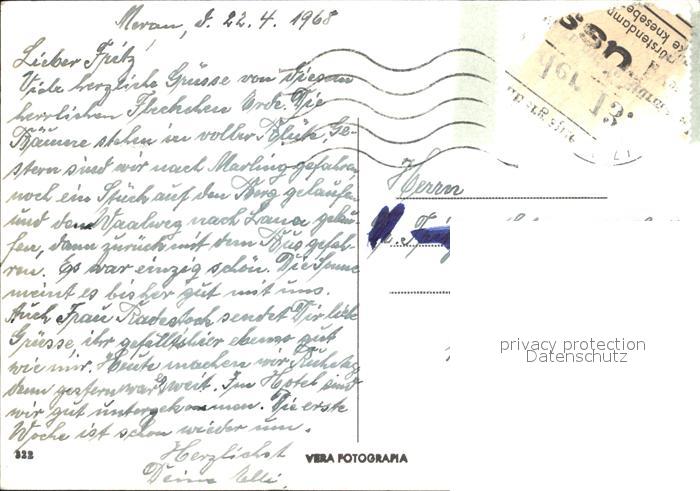 Meran, d. 22.4. 1968
Lieber Fritz
Viele herzliche Grüsse von diesem
herrlichen Fleckchen Erde. Die
Bäume stehen in voller Blüte. Ge-
stern sind wir nach Marling gefahren,
noch ein Stück auf den Berg gelaufen
und den Waalweg nach Lana gelau-
fen, dann zurück mit dem Bus gefah-
ren. Es war einzig schön. Die Sonne
meint es bisher gut mit uns.
Auch Frau Radestock sendet Dir liebe
Grüsse ihr gefällts hier ebenso gut
wie mir. Heute machen wir Ruhetag
denn gestern war's weit. Im Hotel sind
wir gut untergekommen. Die erste
Woche ist schon wieder um.
Herzlichst
Deine Elli.
Herrn
privacy protection
Datenschutz
322
VERA FOTOGRAFIA